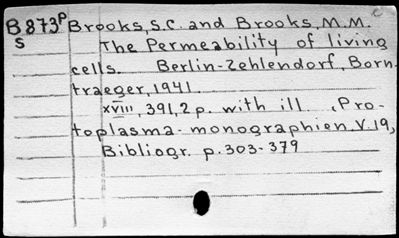 B873P Brooks, S.C. and Brooks, M.M.
S The Permeability of living
cells. Berlin-Zehlendorf, Born-
traeger, 1941.
xviii, 391, 2 p. with ill. (Pro-
toplasma-monographien. V. 19,
Bibliogr. p. 303-379
c